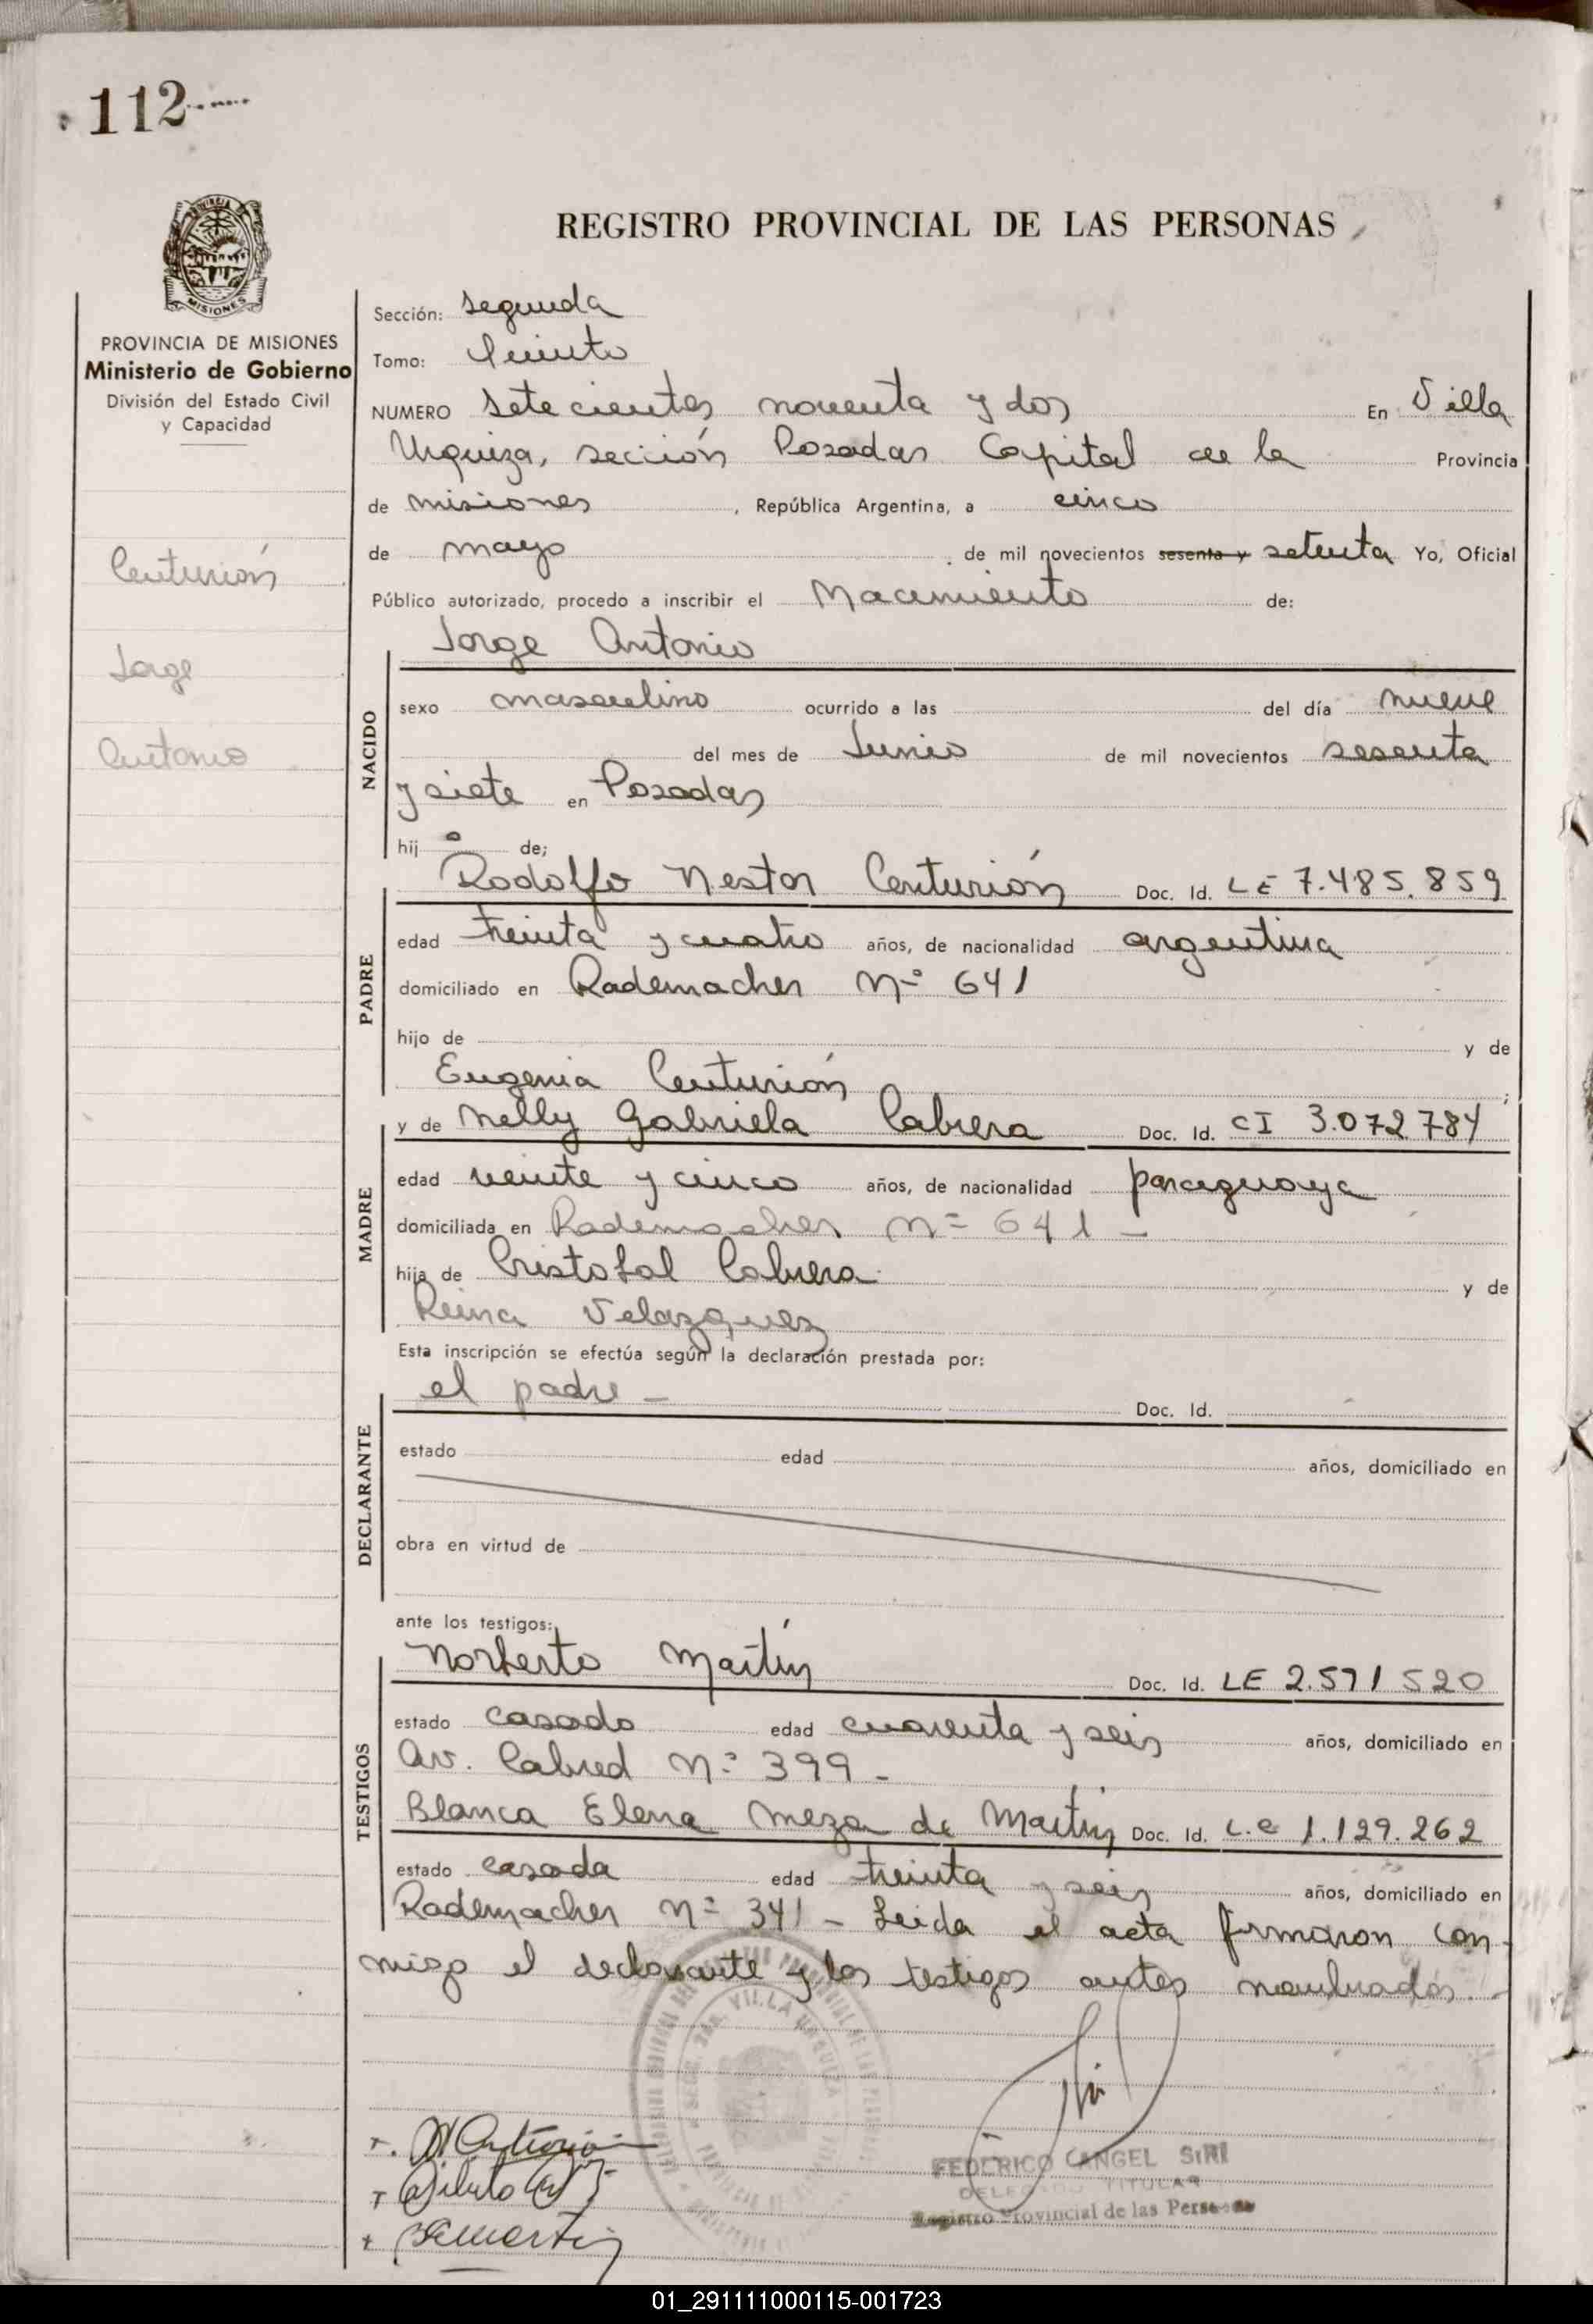 112
REGISTRO PROVINCIAL DE LAS PERSONAS
MISIONES
PROVINCIA DE MISIONES
Ministerio de Gobierno
División del Estado Civil
y Capacidad
Centurión
Jorge
Antonio
Sección: segunda
Tomo: Quinto
NUMERO Setecientos noventa y dos En Villa
Urquiza, sección Posadas Capital de la Provincia
de misiones, República Argentina, a cinco
de mayo de mil novecientos sesenta y setenta Yo, Oficial
Público autorizado, procedo a inscribir el Nacimiento de:
Jorge Antonio
NACIDO
sexo masculino ocurrido a las del día nueve
del mes de Junio de mil novecientos sesenta
y siete en Posadas
hijo de;
PADRE
Rodolfo Nestor Centurión Doc. Id. LE 7.485.859
edad treinta y cuatro años, de nacionalidad argentina
domiciliado en Rademacher Nº 641
hijo de y de
Eugenia Centurión;
MADRE
y de Nelly Gabriela Cabrera Doc. Id. CI 3.072784
edad veinte y cinco años, de nacionalidad paraguaya
domiciliada en Rademacher Nº 641 -
hija de Cristobal Cabrera y de
Reina Velazquez
Esta inscripción se efectúa según la declaración prestada por:
DECLARANTE
el padre - Doc. Id.
estado edad años, domiciliado en
obra en virtud de
ante los testigos:
TESTIGOS
Norberto Martín Doc. Id. LE 2.571520
estado casado edad cuarenta y seis años, domiciliado en
Av. Cabred Nº 399 -
Blanca Elena Meza de Martín Doc. Id. L.C 1.129.262
estado casada edad treinta y seis años, domiciliado en
Rademacher Nº 341 - Leida el acta firmaron con
migo el declarante y los testigos antes nombrados.
VILLA URQUIZA
FEDERICO ANGEL SIRI
DELEGADO TITULAR
Registro Provincial de las Personas
01_291111000115-001723